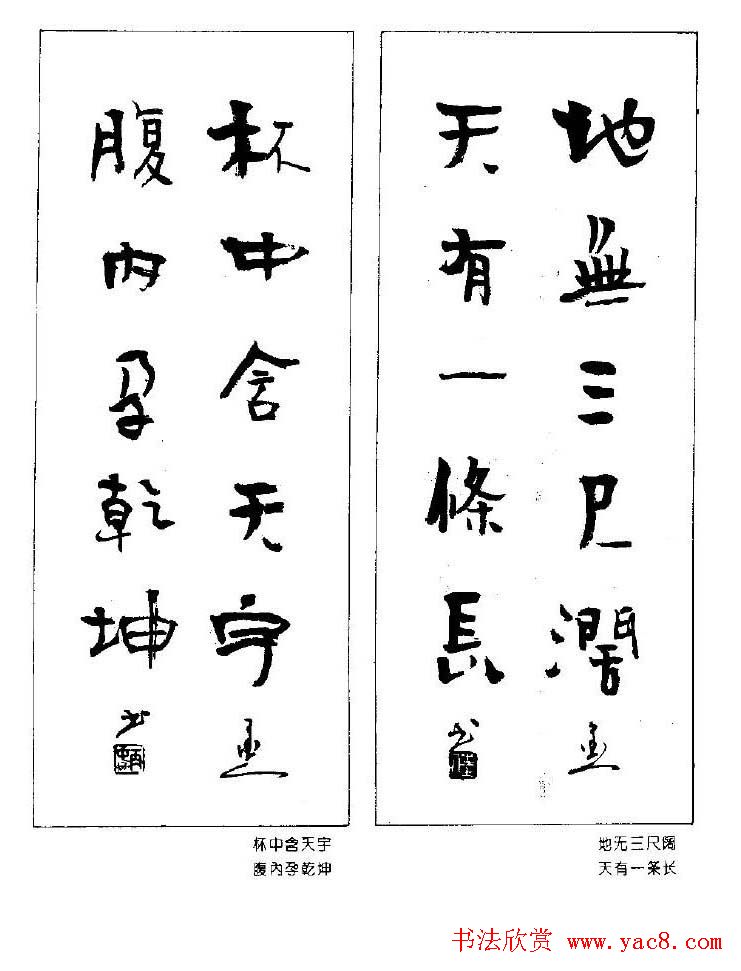 地無三尺濶
天有一條長
杯中含天宇
腹內孕乾坤
地无三尺阔
天有一条长
杯中含天宇
腹內孕乾坤
书法欣赏 www.yac8.com